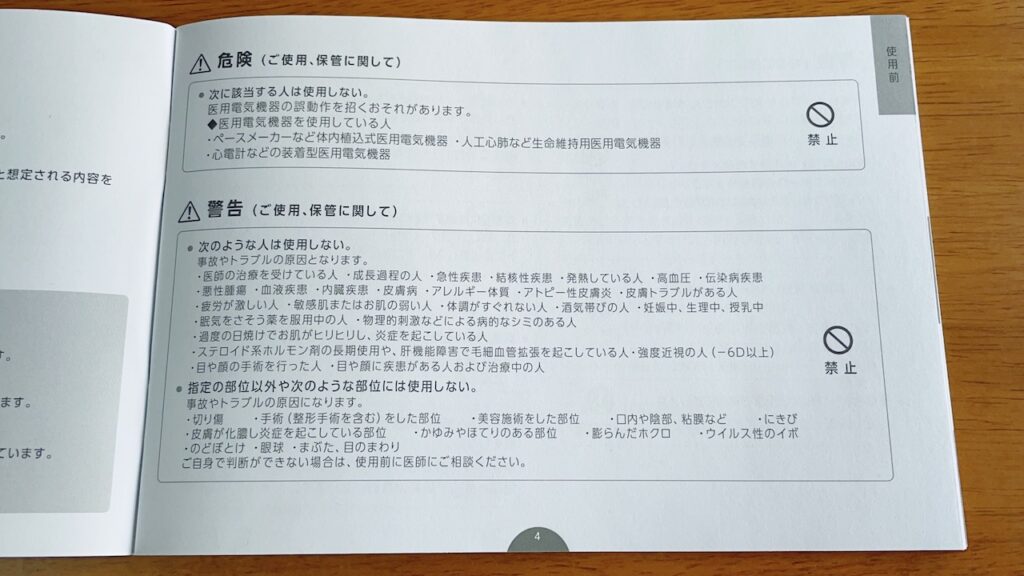 。
と想定される内容を
す。
ます。
ています。
使用前
危険 (ご使用、保管に関して)
● 次に該当する人は使用しない。
医用電気機器の誤動作を招くおそれがあります。
◆医用電気機器を使用している人
・ペースメーカーなど体内植込式医用電気機器 ・人工心肺など生命維持用医用電気機器
・心電計などの装着型医用電気機器
禁止
警告 (ご使用、保管に関して)
● 次のような人は使用しない。
事故やトラブルの原因となります。
・医師の治療を受けている人 ・成長過程の人 ・急性疾患 ・結核性疾患 ・発熱している人 ・高血圧 ・伝染病疾患
・悪性腫瘍 ・血液疾患 ・内臓疾患 ・皮膚病 ・アレルギー体質 ・アトピー性皮膚炎 ・皮膚トラブルがある人
・疲労が激しい人 ・敏感肌またはお肌の弱い人 ・体調がすぐれない人 ・酒気帯びの人 ・妊娠中、生理中、授乳中
・眠気をさそう薬を服用中の人 ・物理的刺激などによる病的なシミのある人
・過度の日焼けでお肌がヒリヒリし、炎症を起こしている人
・ステロイド系ホルモン剤の長期使用や、肝機能障害で毛細血管拡張を起こしている人・強度近視の人(−6D以上)
・目や顔の手術を行った人 ・目や顔に疾患がある人および治療中の人
● 指定の部位以外や次のような部位には使用しない。
事故やトラブルの原因になります。
・切り傷 ・手術(整形手術を含む)をした部位 ・美容施術をした部位 ・口内や陰部、粘膜など ・にきび
・皮膚が化膿し炎症を起こしている部位 ・かゆみやほてりのある部位 ・膨らんだホクロ ・ウイルス性のイボ
・のどぼとけ ・眼球 ・まぶた、目のまわり
ご自身で判断ができない場合は、使用前に医師にご相談ください。
禁止
4